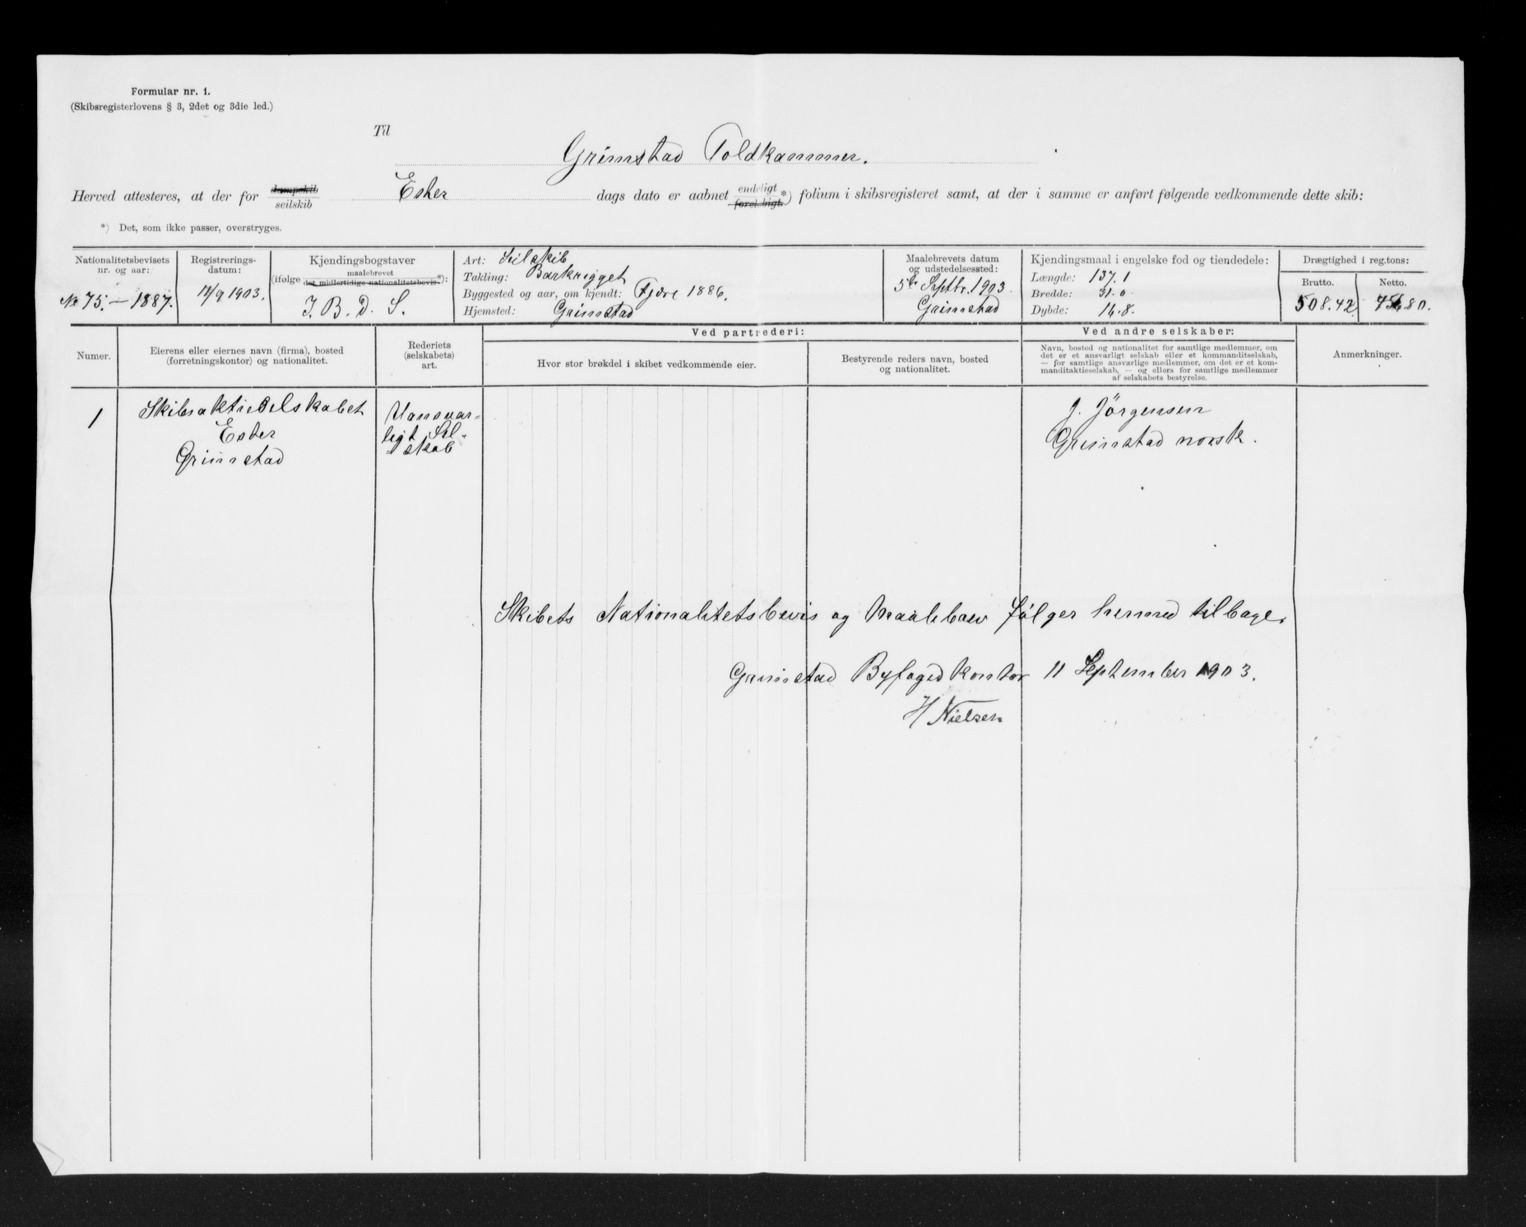 Formular nr. 1.
(Skibsregisterlovens § 3, 2det og 3die led.)
Til
Grimstad Toldkammer.
Herved attesteres, at der for dampskib seilskib Ester dags dato er aabnet endeligt foreløbigt *) folium i skibsregisteret samt, at der i samme er anført følgende vedkommende dette skib:
*) Det, som ikke passer, overstryges.
Nationalitetsbevisets
nr. og aar:
No 75. — 1887.
Registrerings-
datum:
11/9 1903.
Kjendingsbogstaver
(ifølge maalebrevet det midlertidige nationalitetsbevis *):
J. B. D. S.
Art: Seilskib
Takling: Barkrigget
Byggested og aar, om kjendt: Fjære 1886.
Hjemsted: Grimstad
Maalebrevets datum
og udstedelsessted:
5te Septbr. 1903
Grimstad
Kjendingsmaal i engelske fod og tiendedele:
Længde: 137.1
Bredde: 31.0
Dybde: 16.8.
Drægtighed i reg.tons:
Brutto.
508.42
Netto.
Numer.
Eierens eller eiernes navn (firma), bosted
(forretningskontor) og nationalitet.
Rederiets
(selskabets)
art.
Ved partrederi:
Hvor stor brøkdel i skibet vedkommende eier.
Bestyrende reders navn, bosted
og nationalitet.
Ved andre selskaber:
Navn, bosted og nationalitet for samtlige medlemmer, om
det er et ansvarligt selskab eller et kommanditselskab,
— for samtlige ansvarlige medlemmer, om det er et kom-
manditaktieselskab, — og ellers for samtlige medlemmer
af selskabets bestyrelse.
Anmerkninger.
1
Skibsaktieselskabet
Ester
Grimstad
Uansvar-
ligt Sel-
skab
J. Jörgensen
Grimstad norsk.
Skibets Nationalitetsbevis og Maalebrev følger hermed tilbage.
Grimstad Byfogedkontor 11 September 1903.
H Nielsen